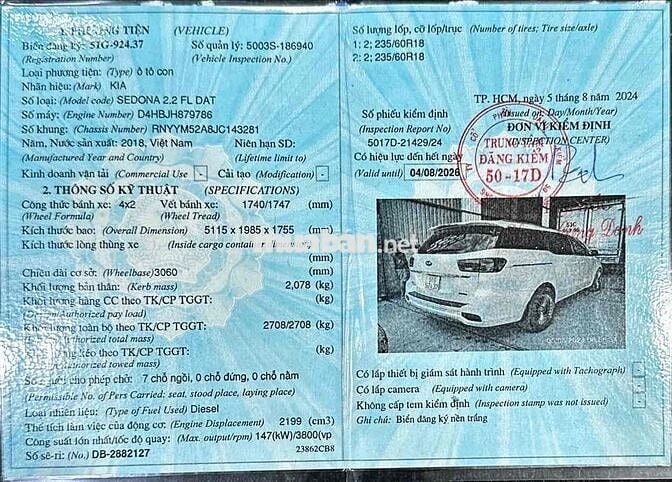 1. PHƯƠNG TIỆN (VEHICLE)
Biển đăng ký: 51G-924.37 Số quản lý: 5003S-186940
(Registration Number) (Vehicle Inspection No.)
Loại phương tiện: (Type) ô tô con
Nhãn hiệu: (Mark) KIA
Số loại: (Model code) SEDONA 2.2 FL DAT
Số máy: (Engine Number) D4HBJH879786
Số khung: (Chassis Number) RNYYM52A8JC143281
Năm, Nước sản xuất: 2018, Việt Nam Niên hạn SD:
(Manufactured Year and Country) (Lifetime limit to)
Kinh doanh vận tải (Commercial Use) - Cải tạo (Modification) -
2. THÔNG SỐ KỸ THUẬT (SPECIFICATIONS)
Công thức bánh xe: 4x2 Vết bánh xe: 1740/1747 (mm)
(Wheel Formula) (Wheel Tread)
Kích thước bao: (Overall Dimension) 5115 x 1985 x 1755 (mm)
Kích thước lòng thùng xe (Inside cargo container
(mm)
Chiều dài cơ sở: (Wheelbase) 3060 (mm)
Khối lượng bản thân: (Kerb mass) 2,078 (kg)
Khối lượng hàng CC theo TK/CP TGGT: (kg)
(Design/Authorized pay load)
Khối lượng toàn bộ theo TK/CP TGGT: 2708/2708 (kg)
total mass)
theo TK/CP TGGT: (kg)
towed mass)
Số người cho phép chở: 7 chỗ ngồi, 0 chỗ đứng, 0 chỗ nằm
(Permissible No. of Pers Carried: seat, stood place, laying place)
Loại nhiên liệu: (Type of Fuel Used) Diesel
Thể tích làm việc của động cơ: (Engine Displacement) 2199 (cm3)
Công suất lớn nhất/tốc độ quay: (Max. output/rpm) 147(kW)/3800(vp
Số sê-ri: (No.) DB-2882127 23862CB8
Số lượng lốp, cỡ lốp/trục (Number of tires; Tire size/axle)
1: 2; 235/60R18
2: 2; 235/60R18
TP. HCM, ngày 5 tháng 8 năm 2024
Số phiếu kiểm định (Issued on: Day/Month/Year)
(Inspection Report No) ĐƠN VỊ KIỂM ĐỊNH
5017D-21429/24 (INSPECTION CENTER)
Có hiệu lực đến hết ngày
(Valid until) 04/08/2026
TRUNG TÂM
ĐĂNG KIỂM
50-17D
Danh
Có lắp thiết bị giám sát hành trình (Equipped with Tachograph)
Có lắp camera (Equipped with camera)
Không cấp tem kiểm định (Inspection stamp was not issued)
Ghi chú: Biển đăng ký nền trắng